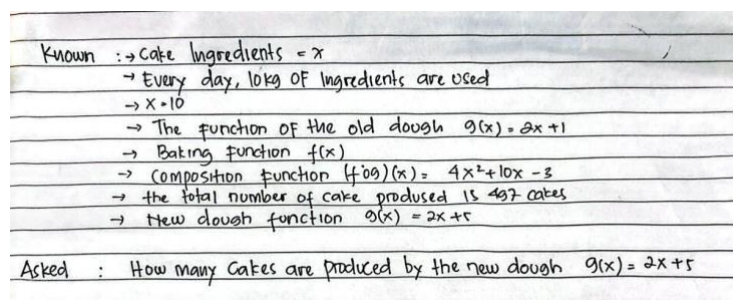 Known : → Cake Ingredients = x
→ Every day, 10kg OF Ingredients are used
→ X = 10
→ The function OF the old dough g(x) = 2x +1
→ Baking function f(x)
→ Composition function (f∘g)(x) = 4x²+10x -3
→ the total number of cake prodused is 497 cakes
→ New dough function g(x) = 2x +5
Asked : How many Cakes are produced by the new dough g(x) = 2x+5